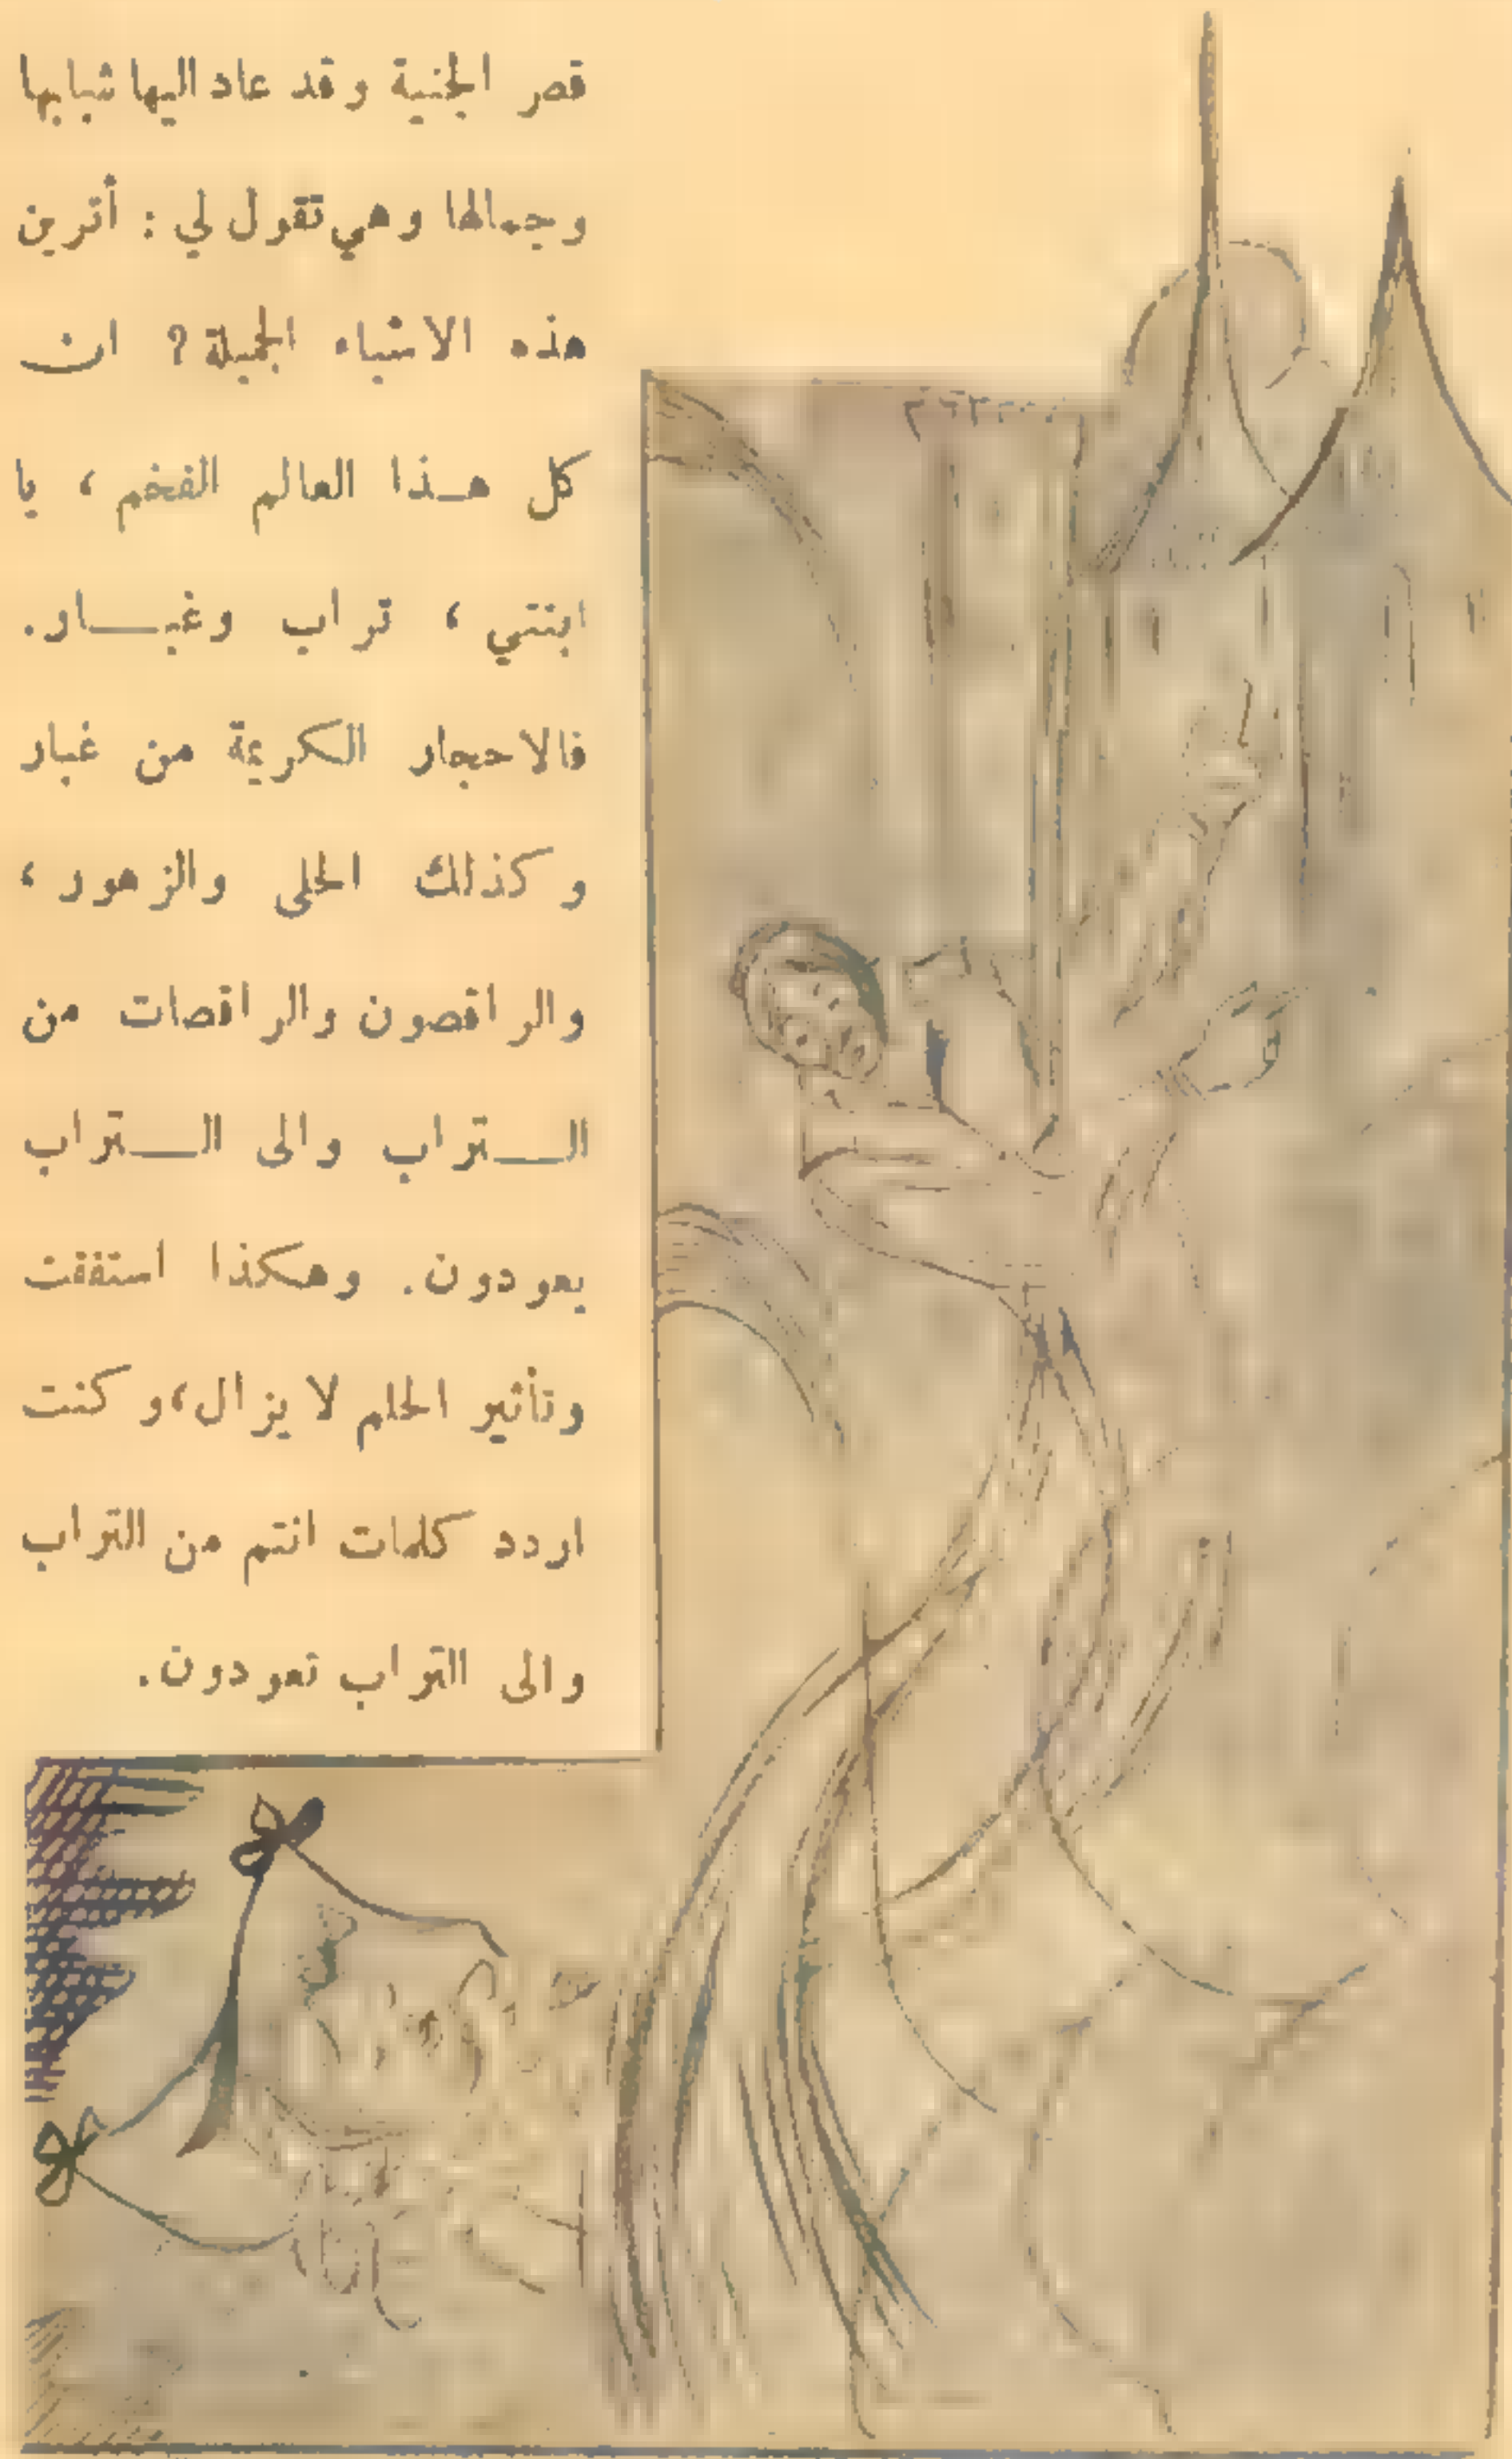 قصر الجنية وقد عاد اليها شبابها
وجمالها وهي تقول لي : أترين
هذه الاشياء الجميلة ؟ ان
كل هـذا العالم الفخم ، يا
ابنتي ، تراب وغبـــار.
فالاحجار الكريمة من غبار
وكذلك الحلى والزهور ،
والراقصون والراقصات من
الـــتراب والى الـــتراب
يعودون. وهكذا استفقت
وتأثير الحلم لا يزال ، وكنت
اردد كلمات انتم من التراب
والى التراب تعودون.